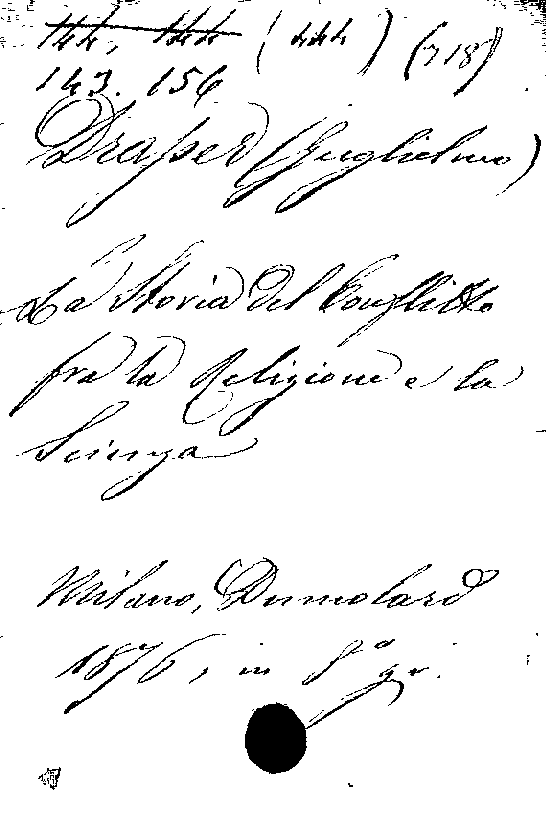 144, 144 (444) (718)
143. 156
Draper (Guglielmo)
La Storia del Conflitto
fra la Religione e la
Scienza
Milano, Dumolard
1876, in 8° gr.